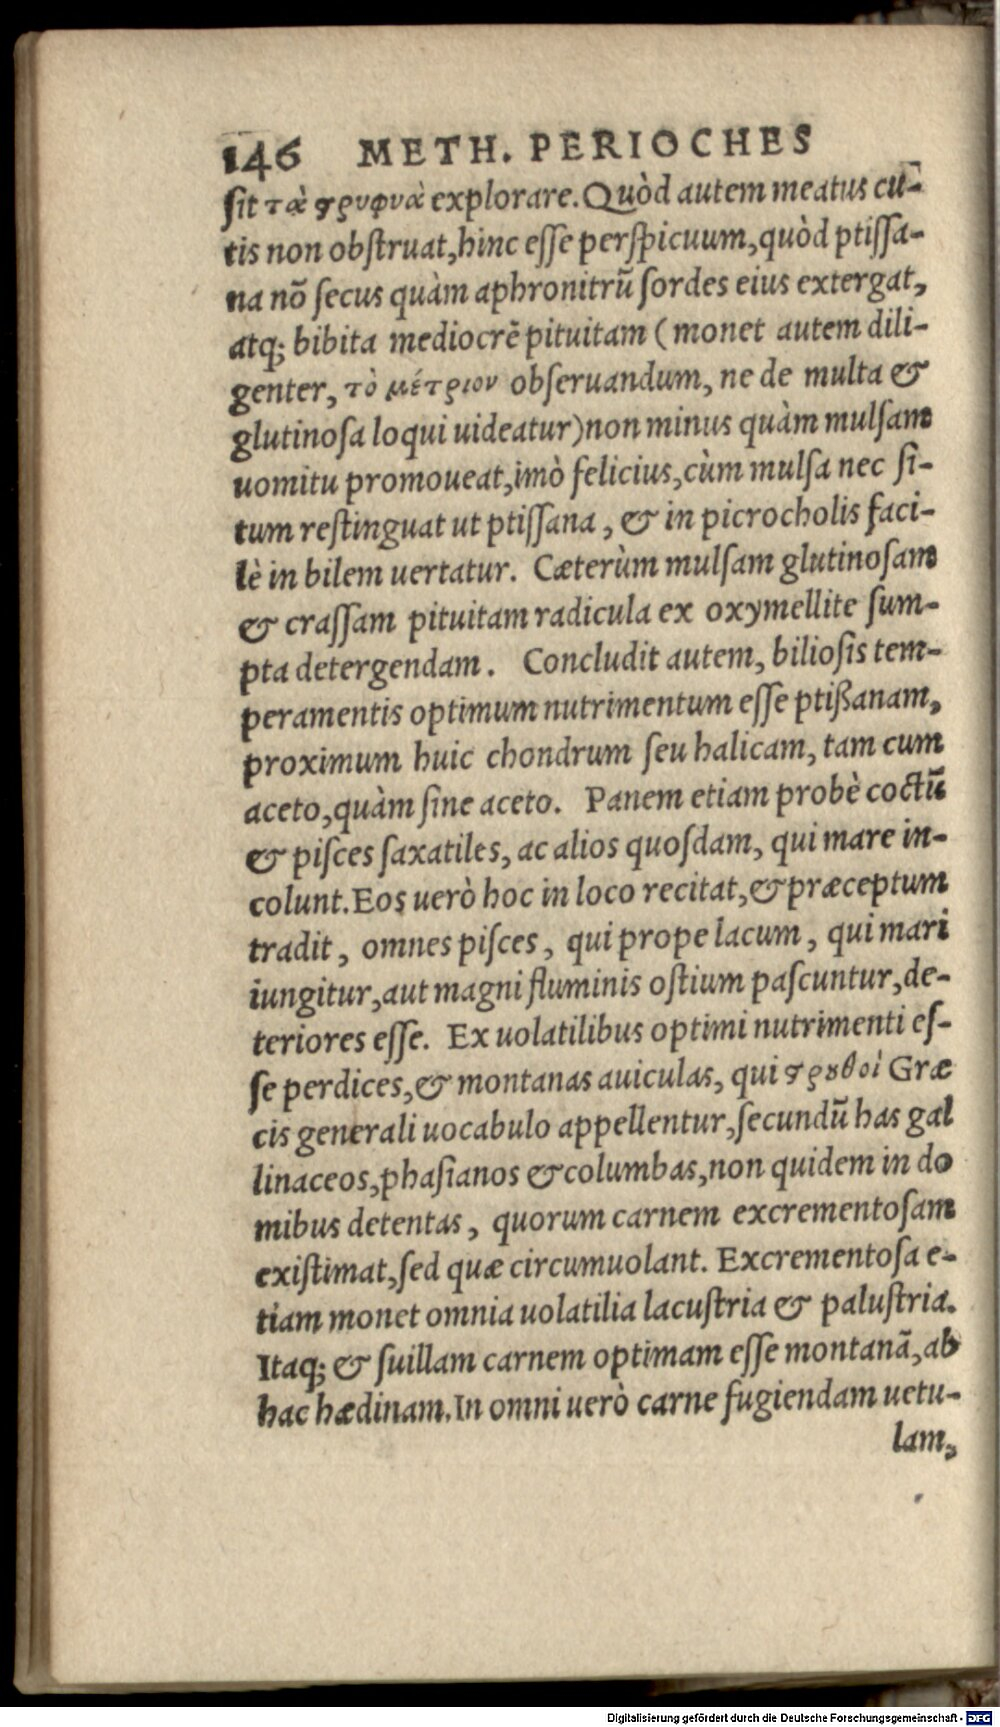 146 METH. PERIOCHES
ſit τὰ ϛρυφνὰ explorare. Quòd autem meatus cu-
tis non obſtruat, hinc eſſe perſpicuum, quòd ptiſſa-
na nõ ſecus quàm aphronitrũ ſordes eius extergat,
atq; bibita mediocrẽ pituitam (monet autem dili-
genter, τὸ μέτριον obſeruandum, ne de multa &
glutinoſa loqui uideatur) non minus quàm mulſam
uomitu promoueat, imò felicius, cùm mulſa nec ſi-
tum reſtinguat ut ptiſſana, & in picrocholis faci-
lè in bilem uertatur. Cæterùm mulſam glutinoſam
& craſſam pituitam radicula ex oxymellite ſum-
pta detergendam. Concludit autem, bilioſis tem-
peramentis optimum nutrimentum eſſe ptißanam,
proximum huic chondrum ſeu halicam, tam cum
aceto, quàm ſine aceto. Panem etiam probè coctũ
& piſces ſaxatiles, ac alios quoſdam, qui mare in-
colunt. Eos uerò hoc in loco recitat, & præceptum
tradit, omnes piſces, qui prope lacum, qui mari
iungitur, aut magni fluminis oſtium paſcuntur, de-
teriores eſſe. Ex uolatilibus optimi nutrimenti eſ-
ſe perdices, & montanas auiculas, qui ϛρȣθοὶ Græ
cis generali uocabulo appellentur, ſecundũ has gal
linaceos, phaſianos & columbas, non quidem in do
mibus detentas, quorum carnem excrementoſam
exiſtimat, ſed quæ circumuolant. Excrementoſa e-
tiam monet omnia uolatilia lacuſtria & paluſtria.
Itaq; & ſuillam carnem optimam eſſe montanã, ab
hac hædinam. In omni uerò carne fugiendam uetu-
lam,
Digitalisierung gefördert durch die Deutsche Forschungsgemeinschaft - DFG